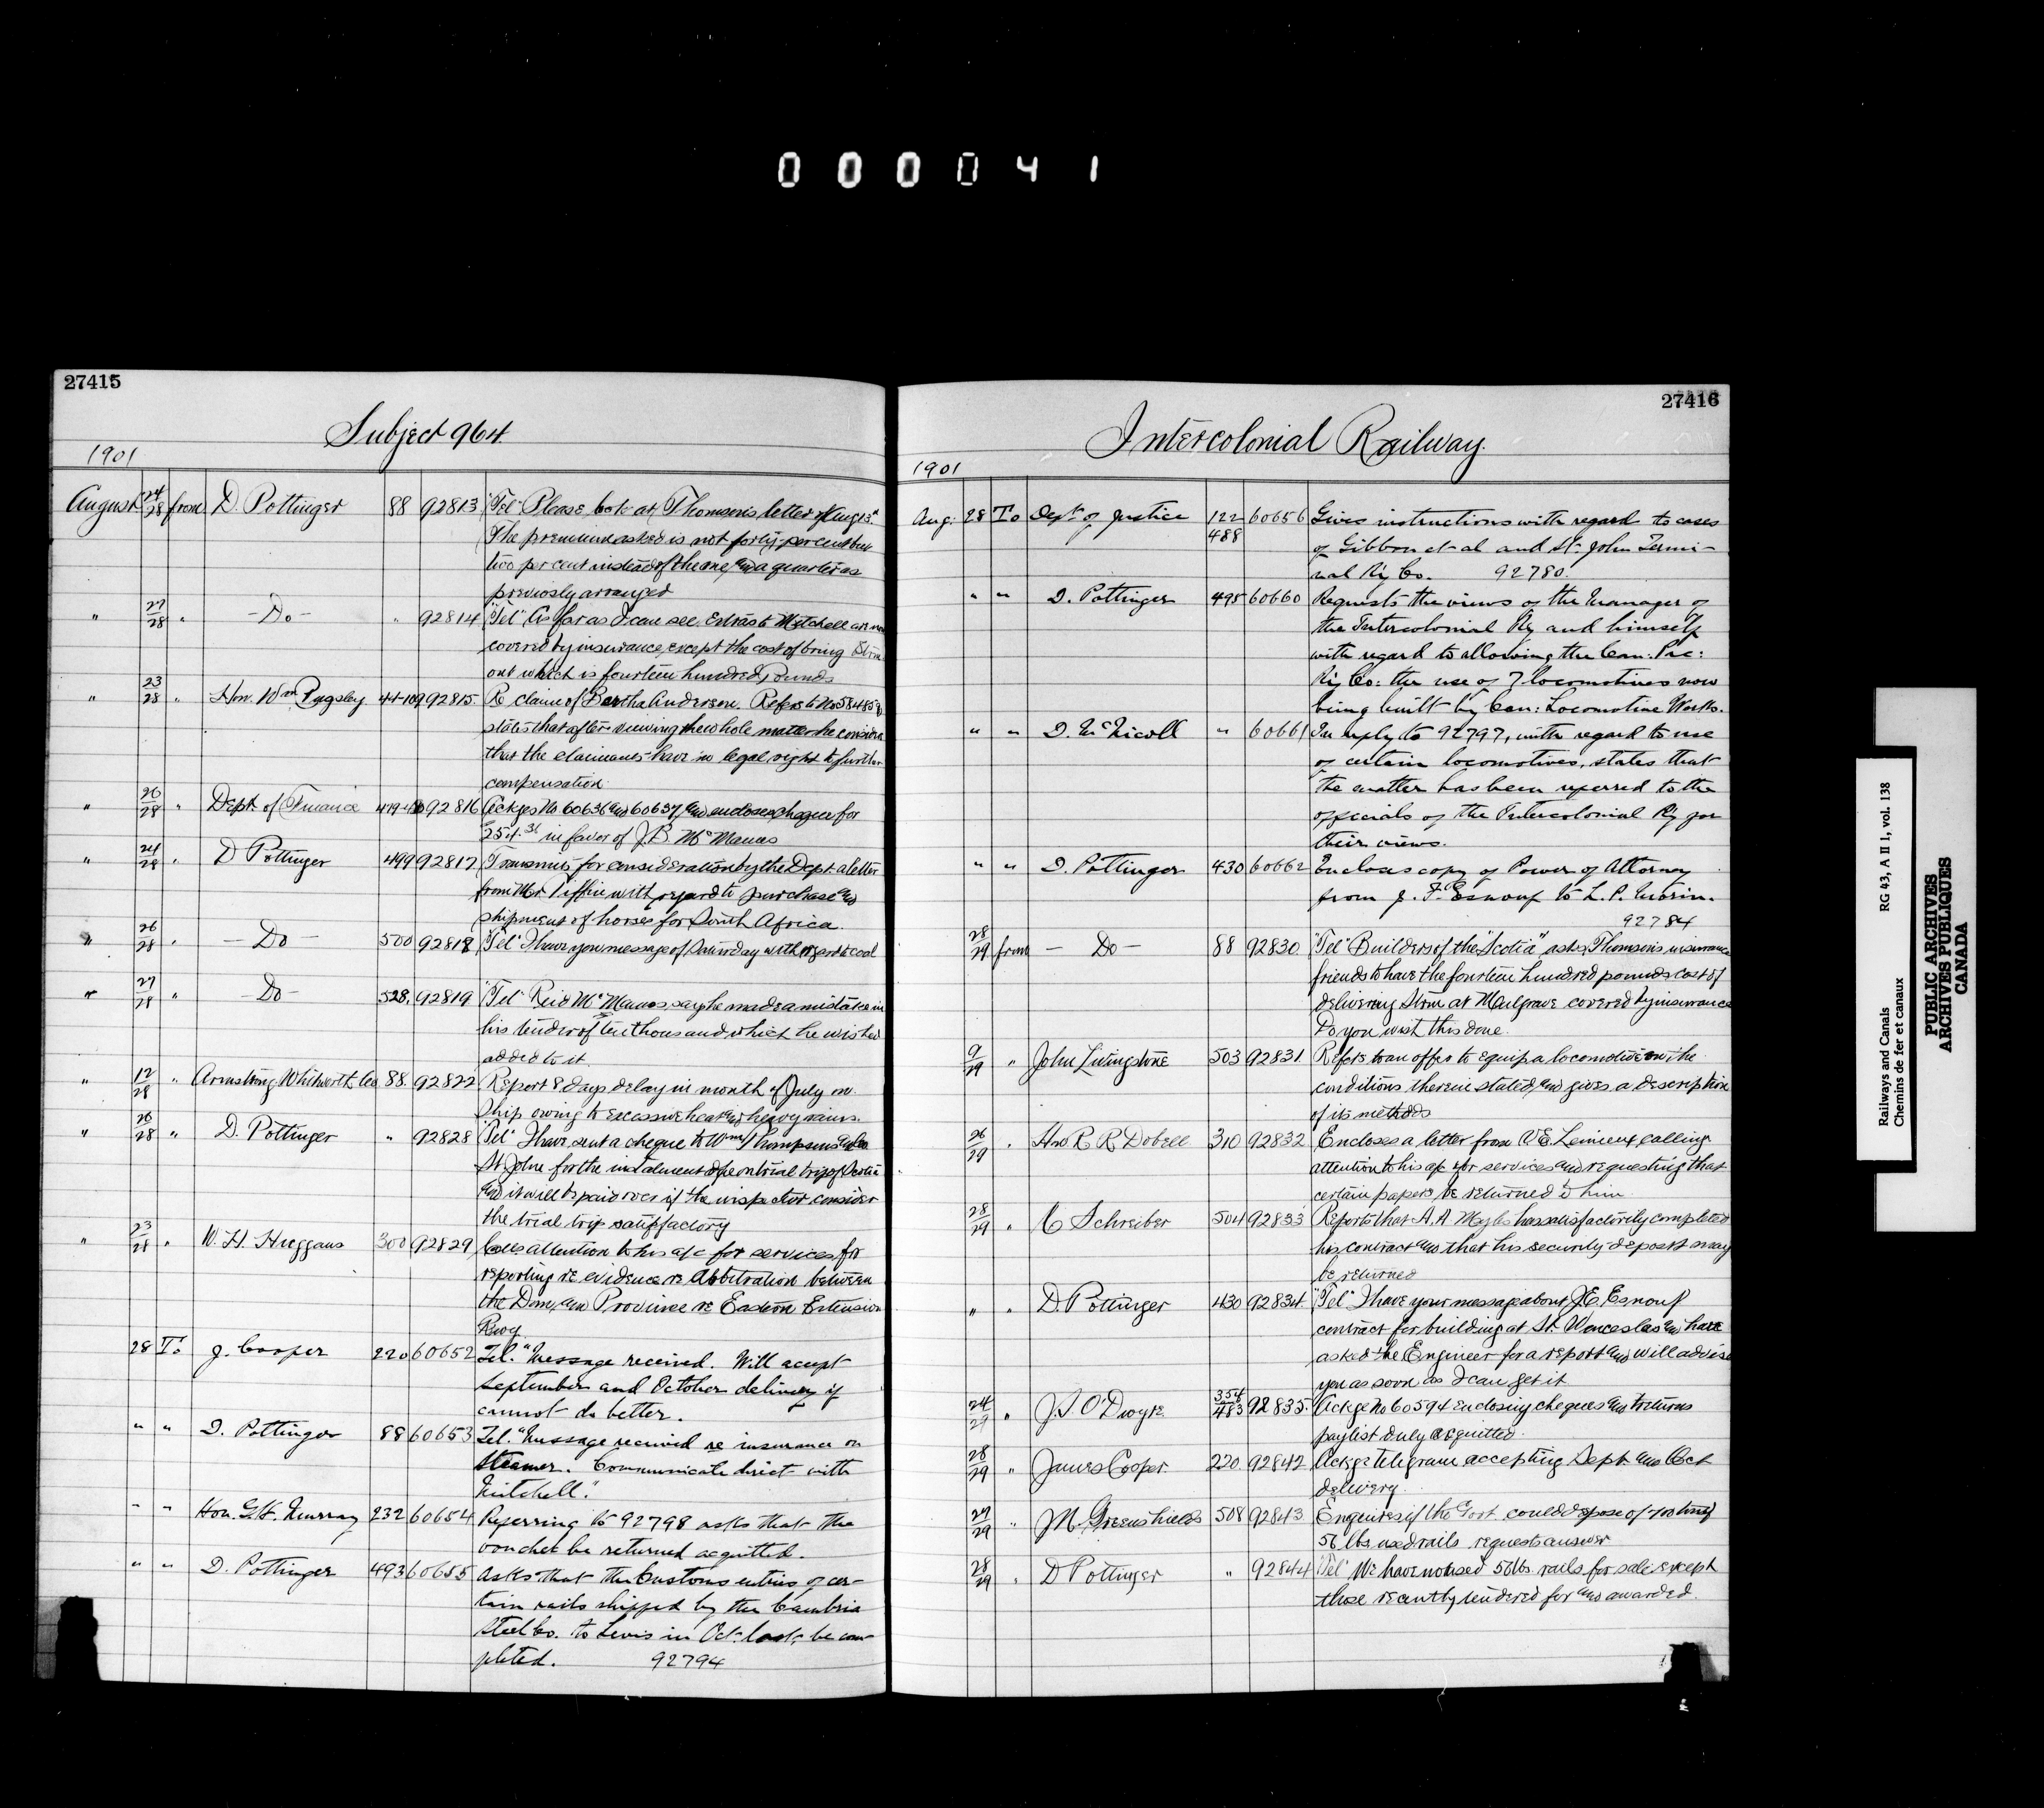 000041
27415
Subject 964.
1901
August 24/28 from D. Pottinger 88 92813 "Tel" Please look at Thomson's letter of Aug 13th
The premium asked is not forty per cent but
two per cent instead of the one and a quarter as
previously arranged
" 27/28 " - Do - " 92814 "Tel" As far as I can see, Extras to Mitchell are not
covered by insurance, except the cost of bring Stm
out which is fourteen hundred Pounds
" 23/28 " Hon. Wm Pugsley 44-109 92815. Re claim of Bertha Anderson. Refers to No 58485
states that after viewing the whole matter he considers
that the claimants have no legal right to further
compensation.
" 26/28 " Dept. of Finance 92816 Ackges No 60636 and 60637, and encloses cheque for
254.31 in favor of J B McManus
" 24/28 " D Pottinger 499 92817 Transmits for consideration by the Dept. a letter
from Mr Tiffin with regard to purchase and
shipment of horses for South Africa.
" 26/28 " - Do - 500 92818 "Tel" I have your message of Saturday with regard to coal
" 27/28 " - Do - 528. 92819 "Tel" Reid McManus says he made a mistake in
his tender of ten thousand which he wished
added to it
" 12/28 " Armstrong Whitworth Co 88. 92822 Report 8 days delay in month of July on
Ship owing to excessive heat and heavy rains.
" 26/28 " D. Pottinger " 92828 "Tel" I have sent a cheque to Wm Thompson and Co
St John for the instalment due on trial trip of Scotia
and it will be paid over if the inspector consider
the trial trip satisfactory
" 23/28 " W. H. Huggans 300 92829 Calls attention to his a/c for services for
reporting re evidence re Abbitration between
the Dom. and Province re Eastern Extension
Rwy.
28 To J. Cooper 220 60652 Tel. "Message received. Will accept
September and October delivery if
cannot do better.
" " D. Pottinger 88 60653 Tel. "Message received re insurance on
Steamer. Communicate direct with
Mitchell."
" " Hon. G.H. Murray 232 60654 Referring to 92798 asks that the
voucher be returned acquitted.
" " D. Pottinger 493 60655 Asks that the Customs entries of cer-
tain rails shipped by the Cambria
Steel Co. to Levis in Oct. last, be com-
pleted. 92794
27416
Intercolonial Railway.
1901
Aug. 28 To Dept. of Justice 122 60656 Gives instructions with regard to cases
488 of Gibbon et al and St. John Termi-
nal Ry Co. 92780.
" " D. Pottinger 495 60660 Requests the views of the Manager of
the Intercolonial Ry and himself
with regard to allowing the Can: Pac:
Ry Co: the use of 7 locomotives now
being built by Can: Locomotive Works.
" " D. McNicoll " 60661 In reply to 92797, with regard to use
of certain locomotives, states that
the matter has been referred to the
officials of the Intercolonial Ry for
their views.
" " D. Pottinger 430 60662 Encloses copy of Power of Attorney
from J. F. Esnouf to L. P. Morin.
92784
28/29 from - Do - 88 92830. "Tel" Builders of the "Scotia" asks Thomson's insurance
friends to have the fourteen hundred pounds cost of
delivering Stm at Mulgrave covered by insurance
Do you wish this done.
9/29 " John Livingstone 503 92831 Refers to an offer to equip a locomotive on the
conditions therein stated, and gives a description
of its methods
26/29 " Hon R R Dobell 310 92832 Encloses a letter from calling
attention to his a/c for services and requesting that
certain papers be returned to him
28/29 " C Schreiber 504 92833 Reports that A. A Myles has satisfactorily completed
his contract and that his security deposit may
be returned
" " D. Pottinger 430 92834. "Tel" I have your message about J.E. Esnouf
contract for building at St. Wenceslas and have
asked the Engineer for a report and will advise
you as soon as I can get it
24/29 " J. S. O'Dwyre 354/483 92835. Ackge No 60594 enclosing cheques and returns
paylist duly acquitted.
28/29 " James Cooper. 220. 92842 Ackge telegram accepting Sept. and Oct
delivery.
27/29 " J M. Greenshields 508 92843 Enquires if the Govt could dispose of 700 tons of
56 lbs. used rails requests answer
28/29 " D Pottinger " 92844 "Tel" We have no used 56 lbs. rails for sale except
those recently tendered for and awarded.
Railways and Canals RG 43, A II 1, vol. 138
Chemins de fer et canaux
PUBLIC ARCHIVES
ARCHIVES PUBLIQUES
CANADA